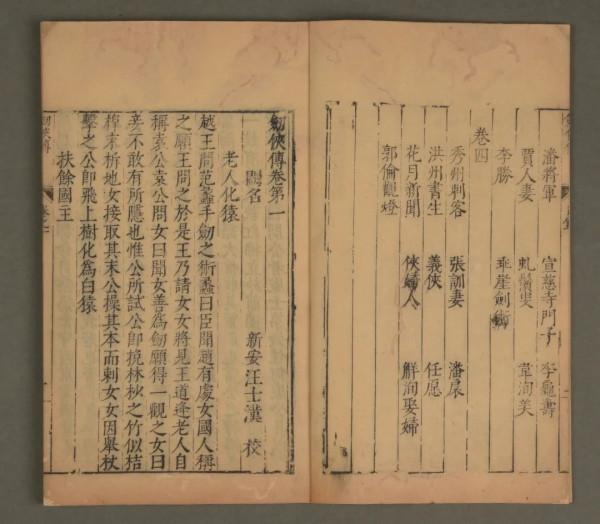 潘將軍 宣慈寺門子 李龜壽
賈人妻 虬鬚叟 韋洵美
李勝 乖崖劍術
卷四
秀州刺客 張訓妻 潘扆
洪州書生 義俠 任愿
花月新聞 俠婦人 解洵娶婦
郭倫觀燈
劒俠傳卷第一
闕名
新安汪士漢 校
老人化猿
越王問范蠡手劒之術蠡曰臣聞趙有處女國人稱
之願王問之於是王乃請女女將見王道逢老人自
稱袁公袁公問女曰聞女善為劒願得一觀之女曰
妾不敢有所隱也惟公所試公卽挽林杪之竹似桔
槔末折地女接取其末公操其本而刺女女因舉杖
擊之公卽飛上樹化為白猿
扶餘國王